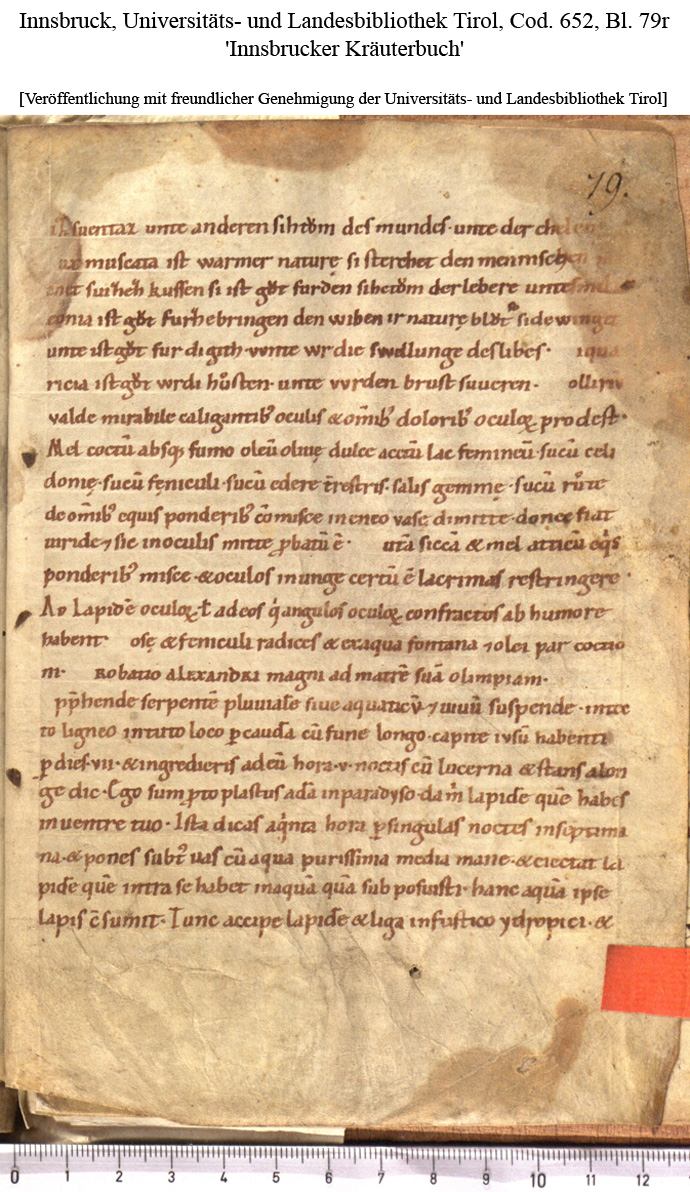 Innsbruck, Universitäts- und Landesbibliothek Tirol, Cod. 652, Bl. 79r
'Innsbrucker Kräuterbuch'
[Veröffentlichung mit freundlicher Genehmigung der Universitäts- und Landesbibliothek Tirol]
79.
unte anderen sihtom des mundes · unte der
muscata ist warmer nature si sterchet den
kussen si ist got fur den sihetom der lebere
ist got furhebringen den wiben ir nature blot
unte ist got fur di giht · unte wr die swllunge des libes ·
ricia ist got wrdi hosten · unte vvrden brust suueren ·
valde mirabile caligantib' oculis & omib' dolorib' oculoꝝ prodest ·
Mel coctū absq; fumo oleū oliuę dulce acetū lac femineū · sucū celi
donię · sucū feniculi · sucū edere t̄restris · salis gemmę · sucū rute
de omib' equis ponderib' cōmisce in eneo vase dimitte · donec fiat
uiride ⁊ sic in oculis mitte ꝓbatū ē · siccā & mel atticū eq̄s
ponderib' misce · & oculos inunge certū ē lacrimas restringere ·
Ad Lapidē oculoꝝ · ł ad eos q̇ angulos oculoꝝ confractos ab humore
habent & feniculi radices & ex aqua fontana ⁊ olei par coctio
robatio alexandri magni ad matrē suā olimpiam ·
pp̄hende serpentē pluuialē siue aquaticū ⁊ uiuū suspende ·
to ligneo in tuto loco ꝑ caudā cū fune longo · capite ivsū habenti
ꝑ dies · vii · & ingredieris ad eū hora · v · noctis cū lucerna & stans a lon
ge dic · Ego sum ꝓtoplastus adā in paradyso · da m̄ lapidē quē habes
in uentre tuo · Ista dicas aq̇nta hora ꝑ singulas noctes in septima
na · & pones subt̄ uas cū aqua purissima media mane · & eiectat la
pidē quē intra se habet in aquā quā sub posuisti · hanc aquā ipse
lapis c̄sumit · Tunc accipe lapidē & liga in fustico ydropici · &
0 1 2 3 4 5 6 7 8 9 10 11 12